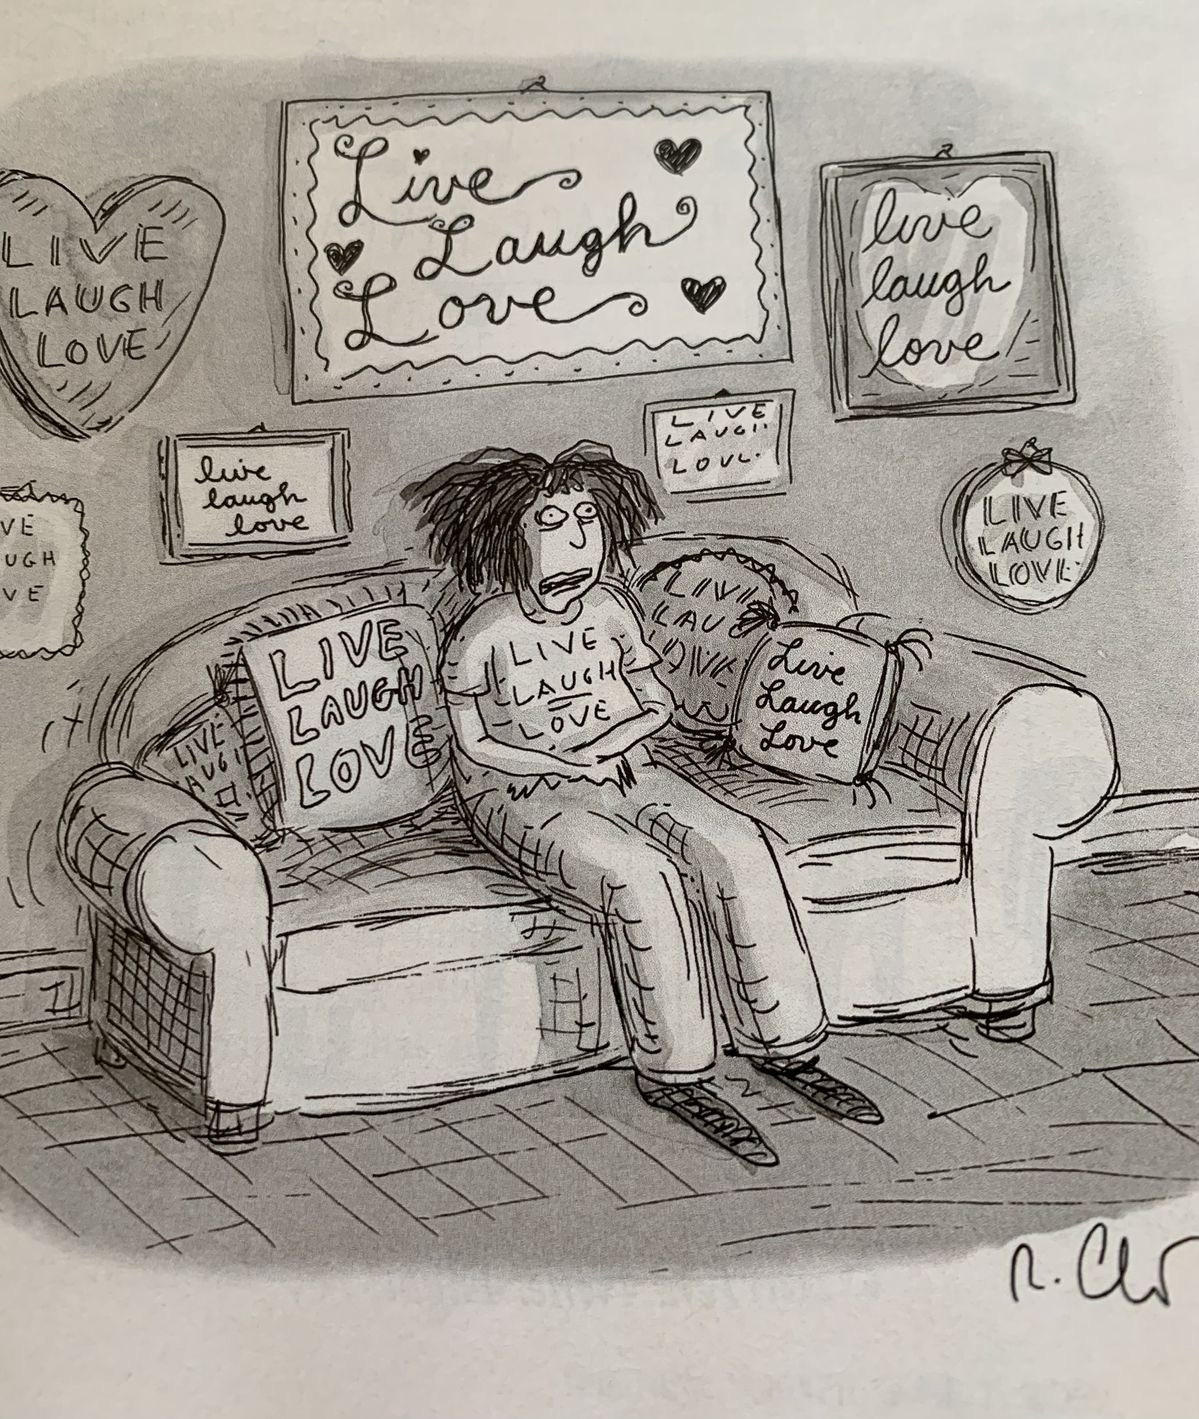 LIVE
LAUGH
LOVE
Live
Laugh
Love
live
laugh
love
live
laugh
love
LIVE
LAUGH
LOVE
VE
UGH
VE
LIVE
LAUGH
LOVE
LIVE
LAUGH
LIVE
LAUGH
LOVE
LIVE
LAUGH
LOVE
LIVE
LAU
Live
Laugh
Love
R. Ch